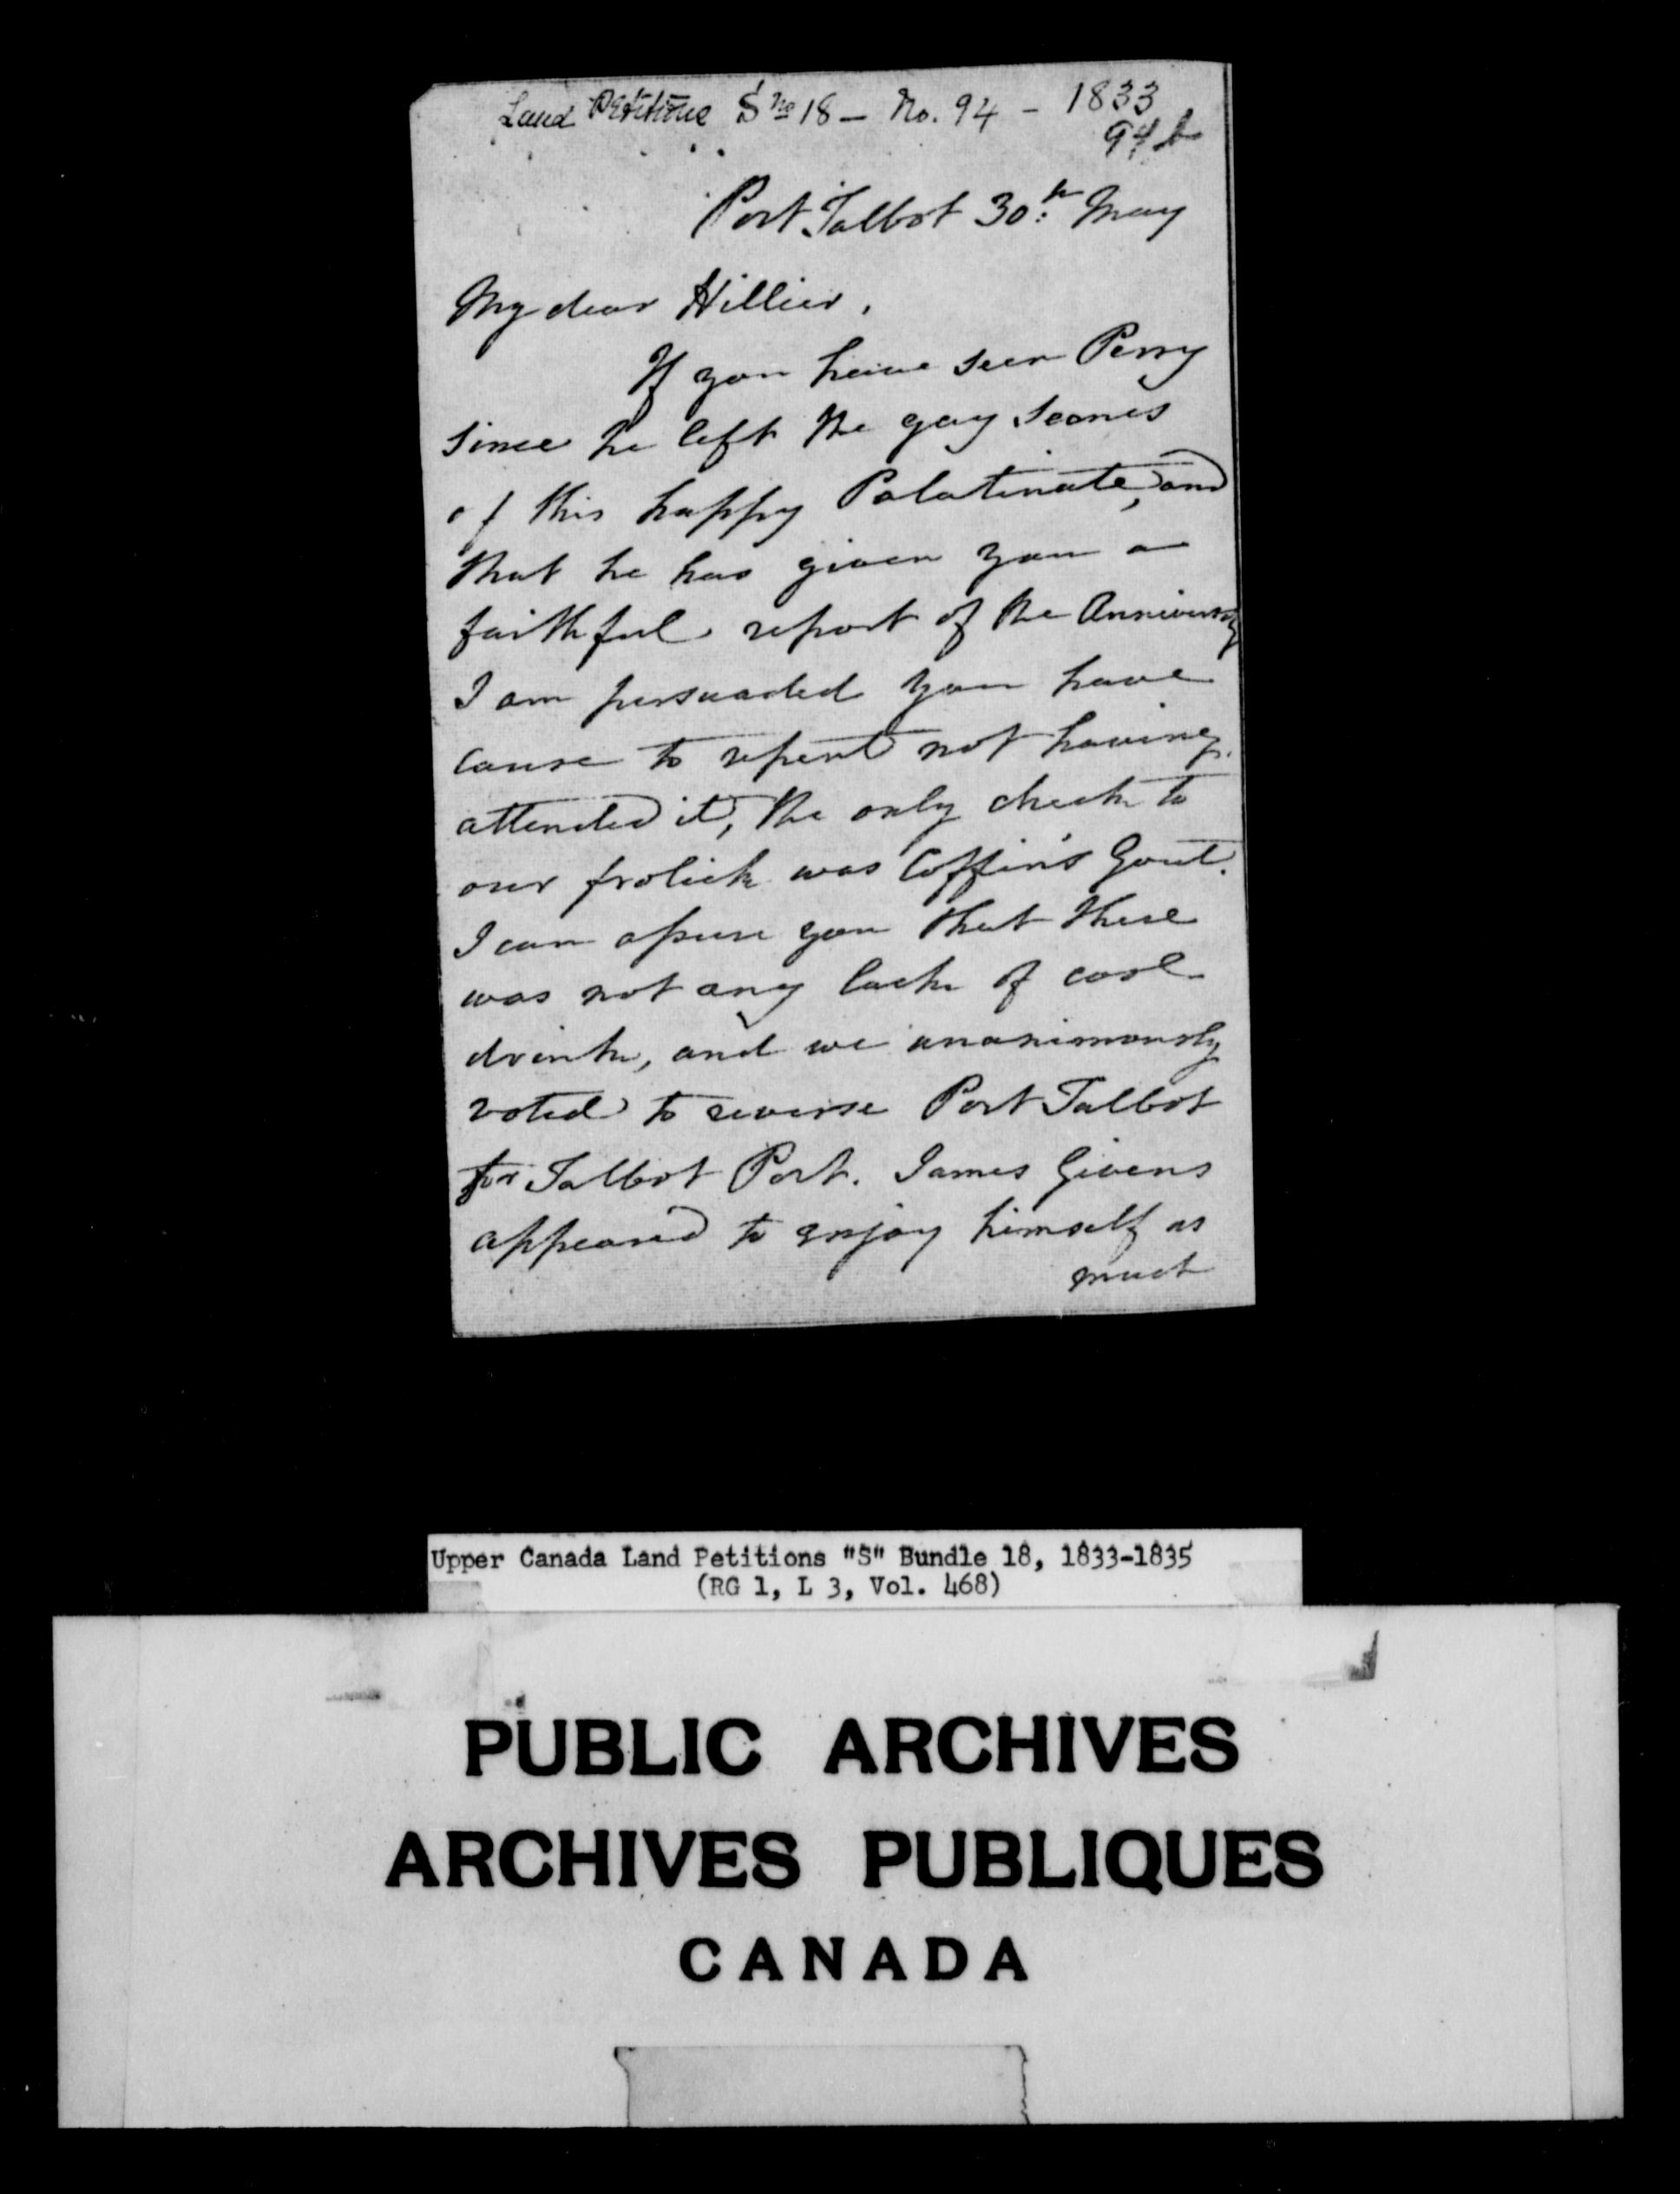 Land Petitions S No 18 - No. 94 - 1833
94 b
Port Talbot 30th May
My dear Hillier,
If you have seen Perry
since he left the gay Scenes
of this happy Palatinate, and
that he has given you a
faithful report of the Anniversy
I am persuaded you have
cause to repent not having
attended it, the only check to
our frolick was Coffin's Gout.
I can assure you that there
was not any lack of cool
drink, and we unanimously
voted to reverse Port Talbot
for Talbot Port. James Givens
appeared to enjoy himself as
much
Upper Canada Land Petitions "S" Bundle 18, 1833-1835
(RG 1, L 3, Vol. 468)
PUBLIC ARCHIVES
ARCHIVES PUBLIQUES
CANADA